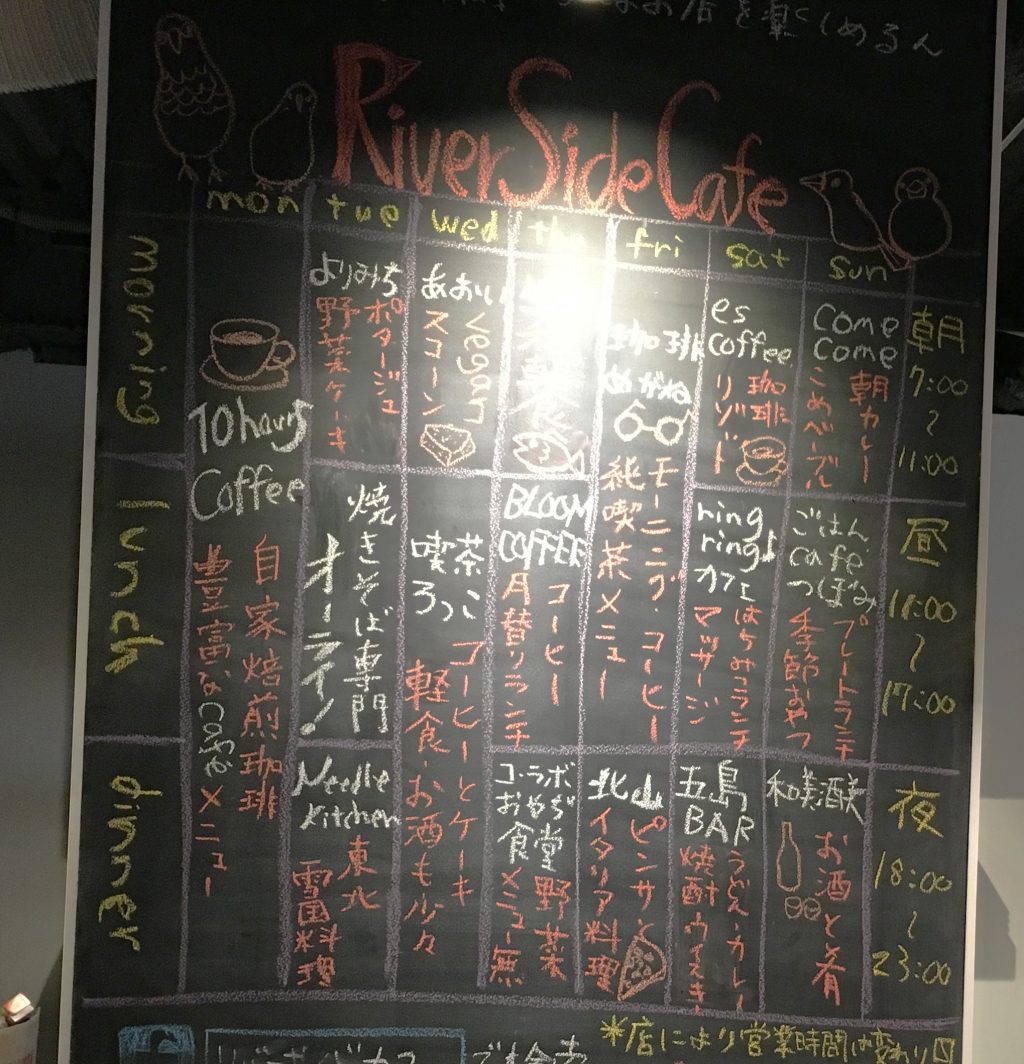 なお店を楽しめるん
River Side Cafe
mon tue wed thu fri sat sun
morning
朝
7:00
～
11:00
10hours
Coffee
自家焙煎珈琲
豊富なcoffeeメニュー
よりみち
ポタージュ
野菜ケーキ
あおい
vegan
スコーン
朝食
珈琲
めがね
モーニング・コーヒー
純喫茶メニュー
es
coffee
珈琲
リゾット
Come
Come
朝カレー
こめベーグル
lunch
昼
11:00
～
17:00
焼きそば専門
オーライ!
喫茶
ろっこ
コーヒーとケーキ
軽食・お酒も少々
BLOOM
COFFEE
コーヒー
月替りランチ
ring
ring♪
カフェ
はちみつランチ
マッサージ
ごはん
cafe
つぼみ
プレートランチ
季節おやつ
dinner
夜
18:00
～
23:00
Needle
Kitchen
東北
雪国料理
コラボ
おやぢ
食堂
野菜
メニュー無
北山
ピンサと
イタリア料理
五島
BAR
うどん・カレー
焼酎ウイスキー
和美醸
お酒と肴
*店により営業時間は変わり